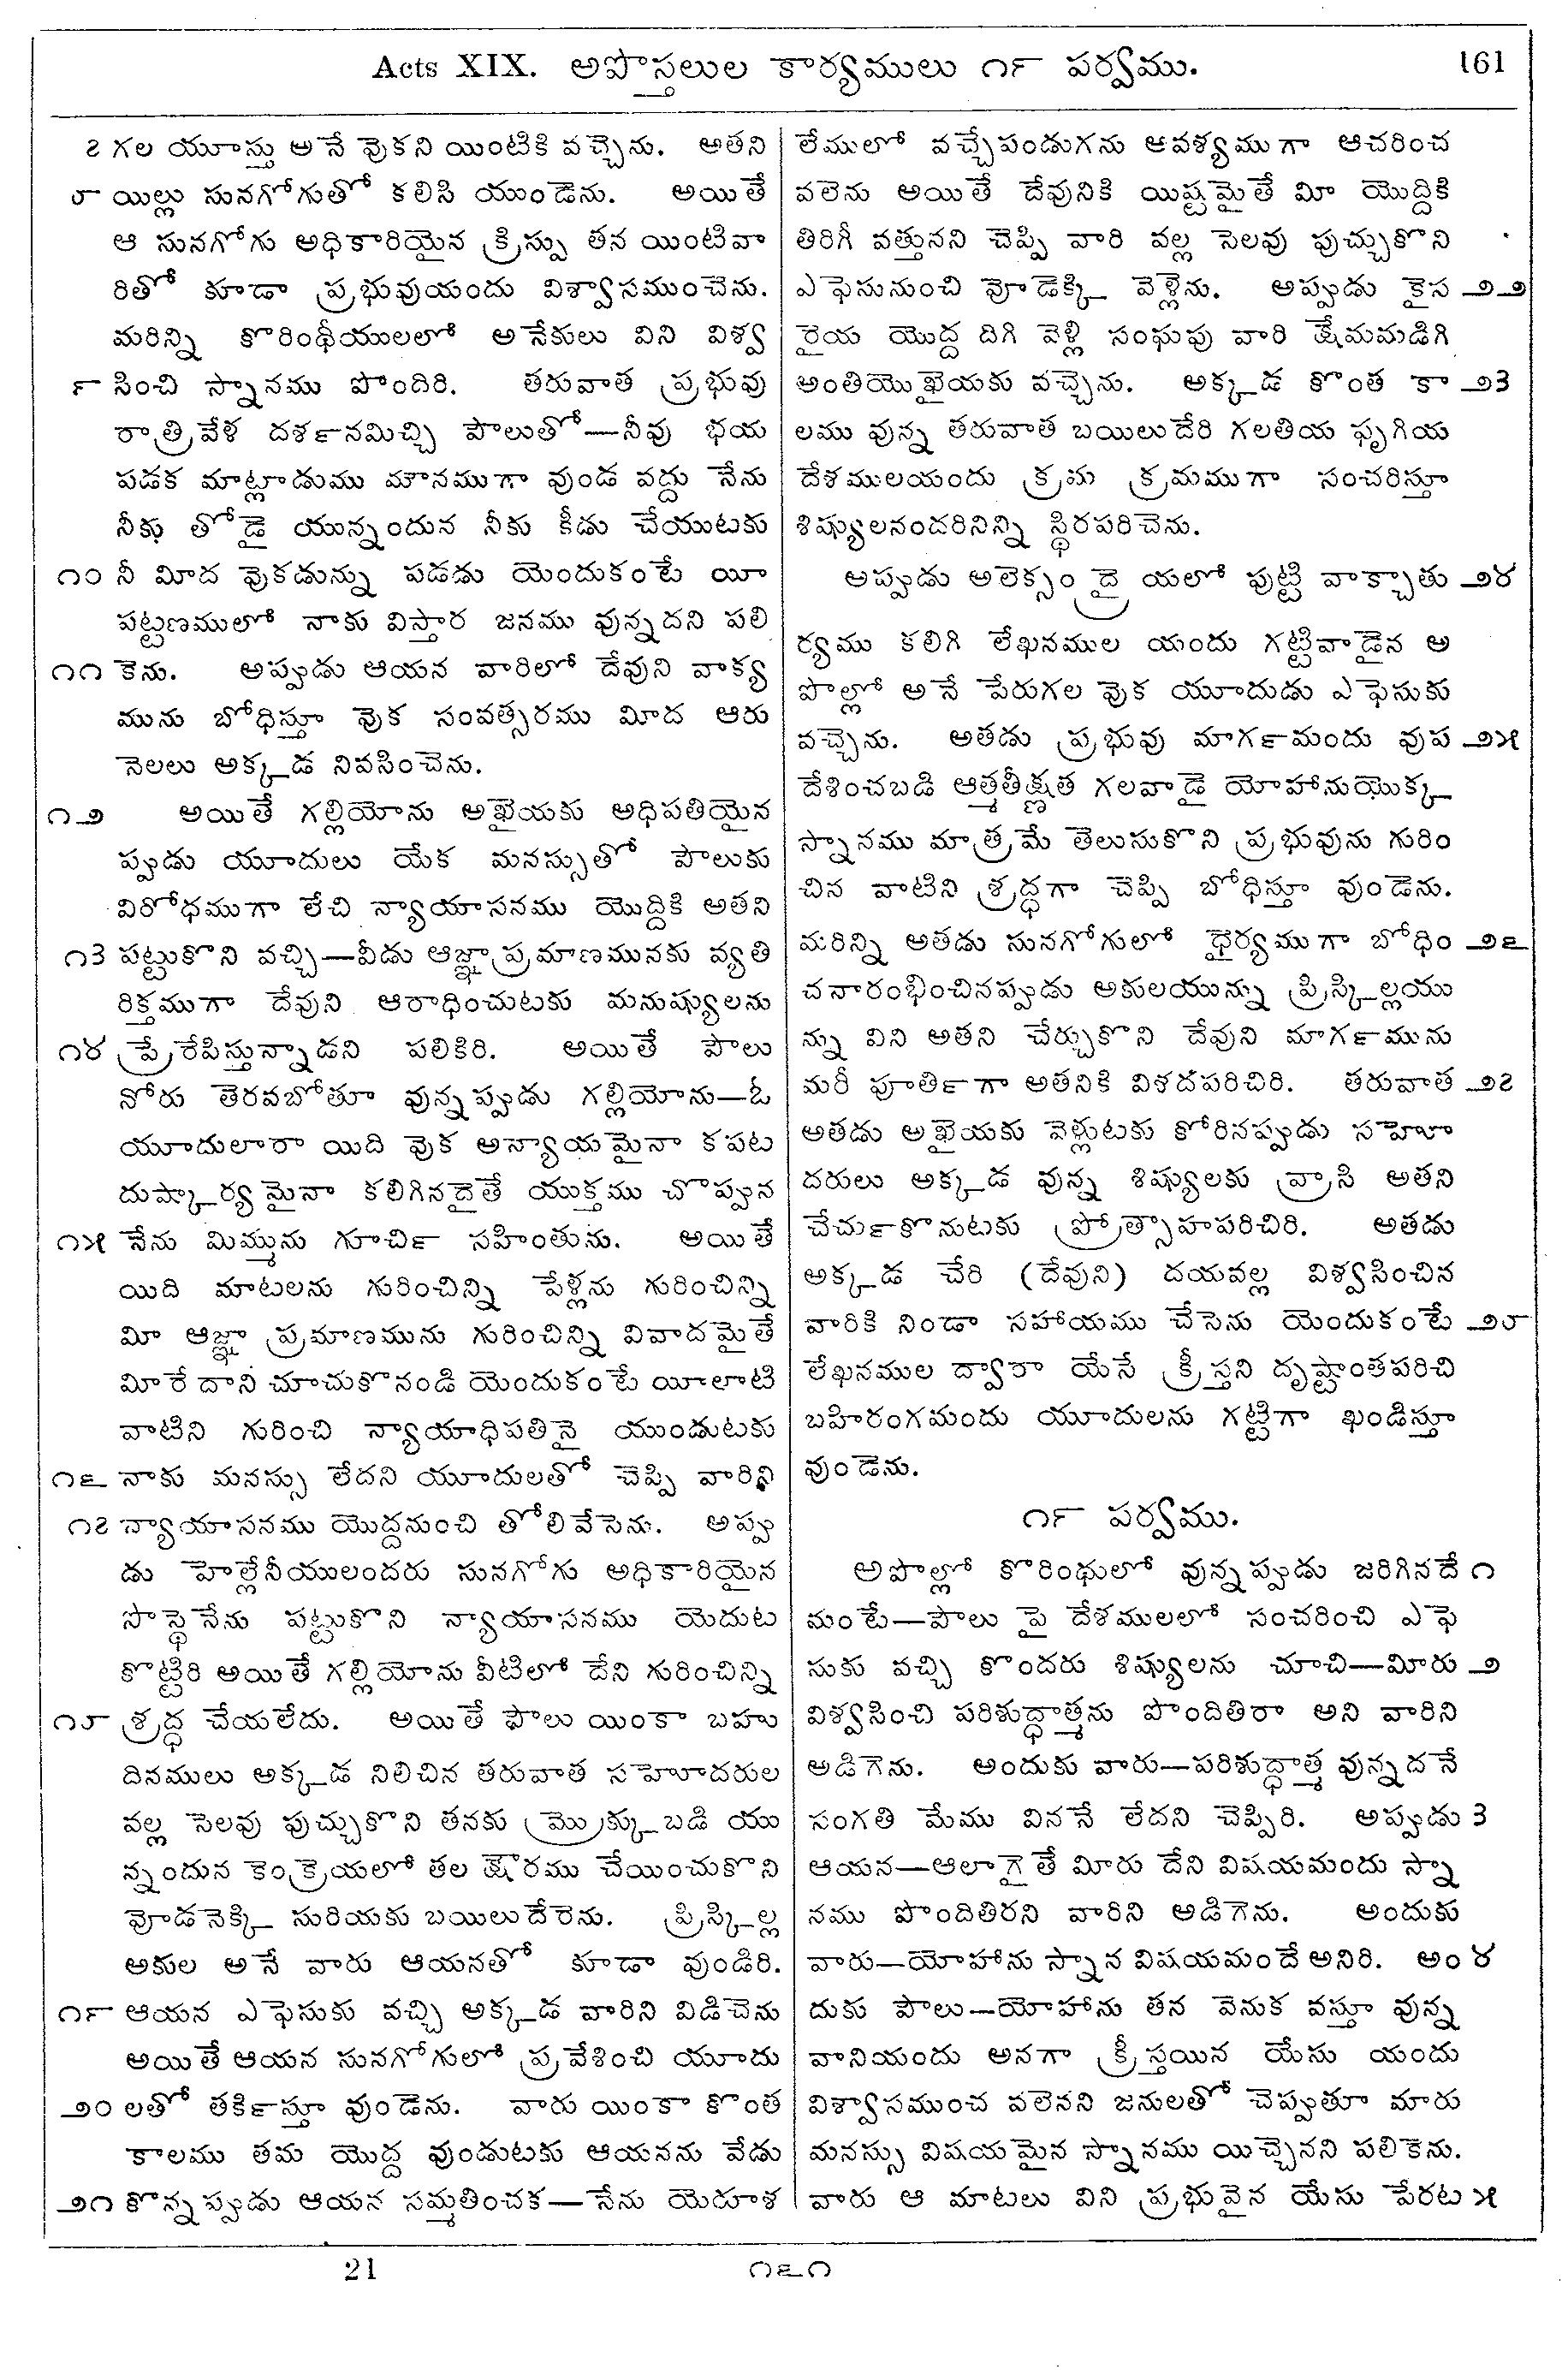 Acts XIX. అపొస్తలుల కార్యములు ౧౯ పర్వము. 161
౭ గల యూస్తు అనే వొకని యింటికి వచ్చెను. అతని
౮ యిల్లు సునగోగుతో కలిసి యుండెను. అయితే
ఆ సునగోగు అధికారియైన క్రిస్పు తన యింటివా
రితో కూడా ప్రభువుయందు విశ్వాసముంచెను.
మరిన్ని కొరింథీయులలో అనేకులు విని విశ్వ
౯ సించి స్నానము పొందిరి. తరువాత ప్రభువు
రాత్రివేళ దర్శనమిచ్చి పౌలుతో—నీవు భయ
పడక మాట్లాడుము మౌనముగా వుండ వద్దు నేను
నీకు తోడై యున్నందున నీకు కీడు చేయుటకు
౧౦ నీ మీద వొకడున్ను పడడు యెందుకంటే యీ
పట్టణములో నాకు విస్తార జనము వున్నదని పలి
౧౧ కెను. అప్పుడు ఆయన వారిలో దేవుని వాక్య
మును బోధిస్తూ వొక సంవత్సరము మీద ఆరు
నెలలు అక్కడ నివసించెను.
౧౨ అయితే గల్లియోను అఖైయకు అధిపతియైన
ప్పుడు యూదులు యేక మనస్సుతో పౌలుకు
విరోధముగా లేచి న్యాయాసనము యొద్దికి అతని
౧౩ పట్టుకొని వచ్చి—వీడు ఆజ్ఞాప్రమాణమునకు వ్యతి
రిక్తముగా దేవుని ఆరాధించుటకు మనుష్యులను
౧౪ ప్రేరేపిస్తున్నాడని పలికిరి. అయితే పౌలు
నోరు తెరవబోతూ వున్నప్పుడు గల్లియోను—ఓ
యూదులారా యిది వొక అన్యాయమైనా కపట
దుష్కార్యమైనా కలిగినదైతే యుక్తము చొప్పున
౧౫ నేను మిమ్మును గూర్చి సహింతును. అయితే
యిది మాటలను గురించిన్ని పేళ్లను గురించిన్ని
మీ ఆజ్ఞా ప్రమాణమును గురించిన్ని వివాదమైతే
మీరే దాని చూచుకొనండి యెందుకంటే యీలాటి
వాటిని గురించి న్యాయాధిపతినై యుండుటకు
౧౬ నాకు మనస్సు లేదని యూదులతో చెప్పి వారిని
౧౭ న్యాయాసనము యొద్దనుంచి తోలివేసెను. అప్పు
డు హెల్లేనీయులందరు సునగోగు అధికారియైన
సొస్థెనేను పట్టుకొని న్యాయాసనము యెదుట
కొట్టిరి అయితే గల్లియోను వీటిలో దేని గురించిన్ని
౧౮ శ్రద్ధ చేయలేదు. అయితే పౌలు యింకా బహు
దినములు అక్కడ నిలిచిన తరువాత సహోదరుల
వల్ల సెలవు పుచ్చుకొని తనకు మ్రొక్కుబడి యు
న్నందున కెంక్రెయలో తల క్షౌరము చేయించుకొని
వోడనెక్కి సురియకు బయిలుదేరెను. ప్రిస్కిల్ల
అకుల అనే వారు ఆయనతో కూడా వుండిరి.
౧౯ ఆయన ఎఫెసుకు వచ్చి అక్కడ వారిని విడిచెను
అయితే ఆయన సునగోగులో ప్రవేశించి యూదు
౨౦ లతో తర్కిస్తూ వుండెను. వారు యింకా కొంత
కాలము తమ యొద్ద వుండుటకు ఆయనను వేడు
౨౧ కొన్నప్పుడు ఆయన సమ్మతించక—నేను యెరూశ
లేములో వచ్చేపండుగను ఆవశ్యముగా ఆచరించ
వలెను అయితే దేవునికి యిష్టమైతే మీ యొద్దికి
తిరిగీ వత్తునని చెప్పి వారి వల్ల సెలవు పుచ్చుకొని
ఎఫెసునుంచి వోడెక్కి వెళ్లెను. అప్పుడు కైస ౨౨
రైయ యొద్ద దిగి వెళ్లి సంఘపు వారి క్షేమమడిగి
అంతియొఖైయకు వచ్చెను. అక్కడ కొంత కా ౨౩
లము వున్న తరువాత బయిలుదేరి గలతియ ఫృగియ
దేశములయందు క్రమ క్రమముగా సంచరిస్తూ
శిష్యులనందరినిన్ని స్థిరపరిచెను.
అప్పుడు అలెక్సంద్రైయలో పుట్టి వాక్చాతు ౨౪
ర్యము కలిగి లేఖనముల యందు గట్టివాడైన అ
పొల్లో అనే పేరుగల వొక యూదుడు ఎఫెసుకు
వచ్చెను. అతడు ప్రభువు మార్గమందు వుప ౨౫
దేశించబడి ఆత్మతీక్ష్ణత గలవాడై యోహానుయొక్క
స్నానము మాత్రమే తెలుసుకొని ప్రభువును గురిం
చిన వాటిని శ్రద్ధగా చెప్పి బోధిస్తూ వుండెను.
మరిన్ని అతడు సునగోగులో ధైర్యముగా బోధిం ౨౬
చనారంభించినప్పుడు అకులయున్ను ప్రిస్కిల్లయు
న్ను విని అతని చేర్చుకొని దేవుని మార్గమును
మరీ పూర్తిగా అతనికి విశదపరిచిరి. తరువాత ౨౭
అతడు అఖైయకు వెళ్లుటకు కోరినప్పుడు సహో
దరులు అక్కడ వున్న శిష్యులకు వ్రాసి అతని
చేర్చుకొనుటకు ప్రోత్సాహపరిచిరి. అతడు
అక్కడ చేరి (దేవుని) దయవల్ల విశ్వసించిన
వారికి నిండా సహాయము చేసెను యెందుకంటే ౨౮
లేఖనముల ద్వారా యేసే క్రీస్తని దృష్టాంతపరిచి
బహిరంగమందు యూదులను గట్టిగా ఖండిస్తూ
వుండెను.
౧౯ పర్వము.
అపొల్లో కొరింథులో వున్నప్పుడు జరిగినదే ౧
మంటే—పౌలు పై దేశములలో సంచరించి ఎఫె
సుకు వచ్చి కొందరు శిష్యులను చూచి—మీరు ౨
విశ్వసించి పరిశుద్ధాత్మను పొందితిరా అని వారిని
అడిగెను. అందుకు వారు—పరిశుద్ధాత్మ వున్నదనే
సంగతి మేము విననే లేదని చెప్పిరి. అప్పుడు ౩
ఆయన—ఆలాగైతే మీరు దేని విషయమందు స్నా
నము పొందితిరని వారిని అడిగెను. అందుకు
వారు—యోహాను స్నాన విషయమందే అనిరి. అం ౪
దుకు పౌలు—యోహాను తన వెనుక వస్తూ వున్న
వానియందు అనగా క్రీస్తయిన యేసు యందు
విశ్వాసముంచ వలెనని జనులతో చెప్పుతూ మారు
మనస్సు విషయమైన స్నానము యిచ్చెనని పలికెను.
వారు ఆ మాటలు విని ప్రభువైన యేసు పేరట ౫
21 ౧౬౧